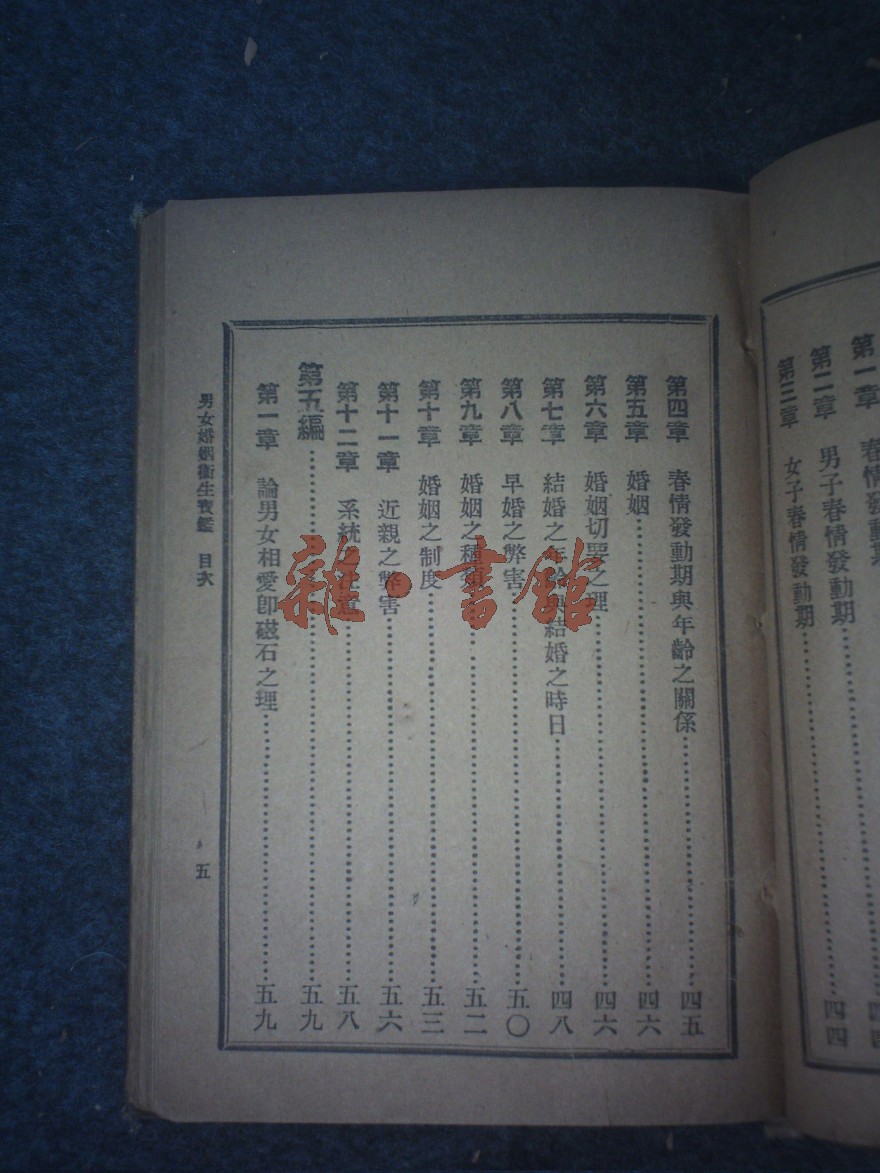 第一章 春情發動期
第二章 男子春情發動期……四四
第三章 女子春情發動期……四四
第四章 春情發動期與年齡之關係……四五
第五章 婚姻……四六
第六章 婚姻切要之理……四六
第七章 結婚之年齡與結婚之時日……四八
第八章 早婚之弊害……五〇
第九章 婚姻之種類……五二
第十章 婚姻之制度……五三
第十一章 近親之弊害……五六
第十二章 系統之注意……五八
第五編……五九
第一章 論男女相愛卽磁石之理……五九
男女婚姻衞生寶鑑 目次 五
雜·書館